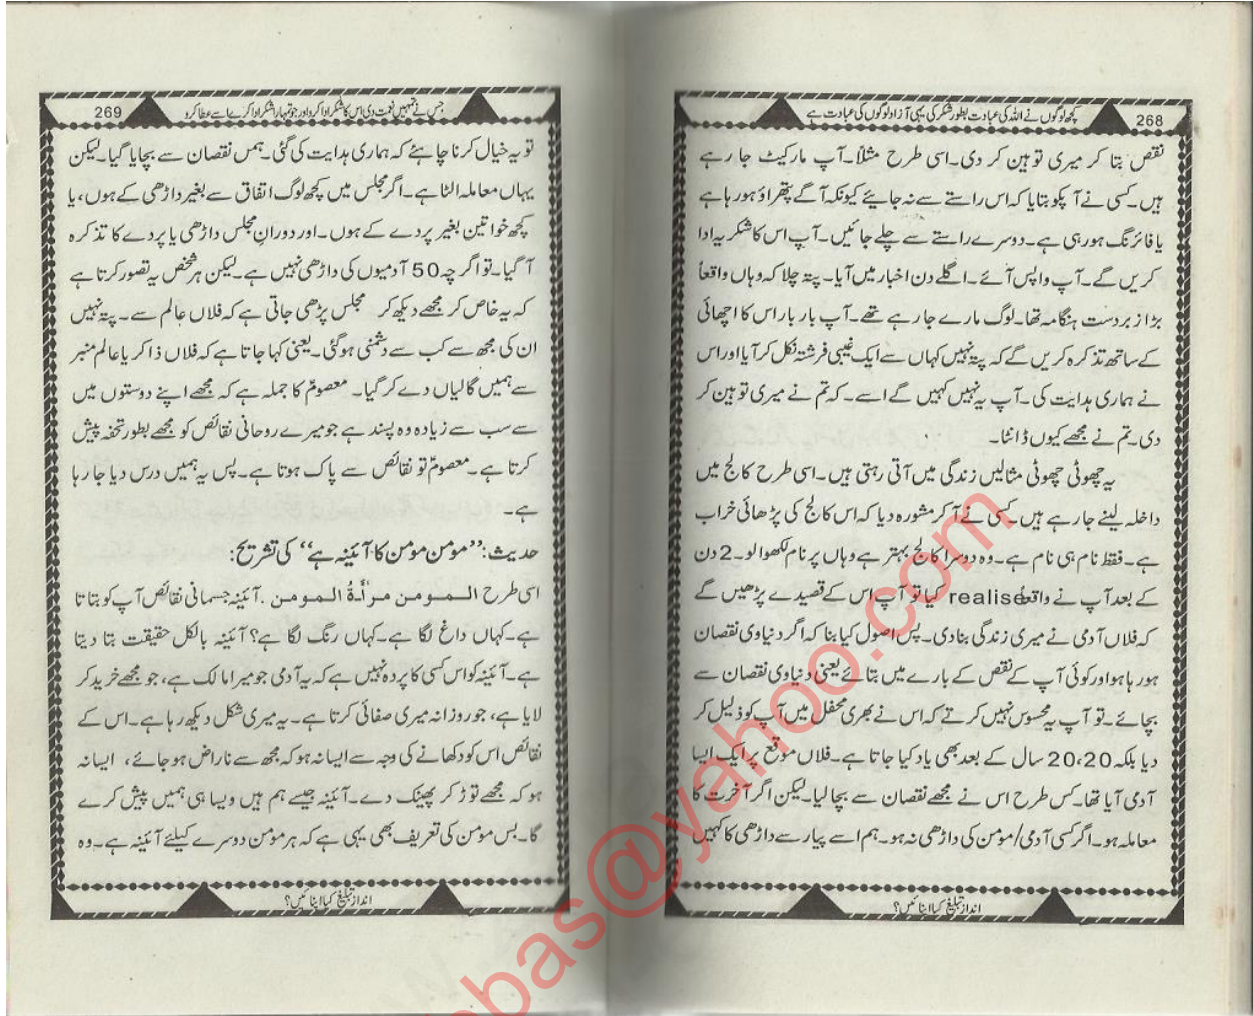 268
کچھ لوگوں نے اللہ کی عبادت بطور شکر کی یہی آزاد لوگوں کی عبادت ہے
نقص بتا کر میری توہین کر دی۔ اسی طرح مثلاً۔ آپ مارکیٹ جا رہے
ہیں۔ کسی نے آپکو بتایا کہ اس راستے سے نہ جایئے کیونکہ آگے پتھراؤ ہو رہا ہے
یا فائرنگ ہو رہی ہے۔ دوسرے راستے سے چلے جائیں۔ آپ اس کا شکریہ ادا
کریں گے۔ آپ واپس آئے۔ اگلے دن اخبار میں آیا۔ پتہ چلا کہ وہاں واقعاً
بڑا زبردست ہنگامہ تھا۔ لوگ مارے جا رہے تھے۔ آپ بار بار اس کا اچھائی
کے ساتھ تذکرہ کریں گے کہ پتہ نہیں کہاں سے ایک غیبی فرشتہ نکل کر آیا اور اس
نے ہماری ہدایت کی۔ آپ یہ نہیں کہیں گے اسے۔ کہ تم نے میری توہین کر
دی۔ تم نے مجھے کیوں ڈانٹا۔
یہ چھوٹی چھوٹی مثالیں زندگی میں آتی رہتی ہیں۔ اسی طرح کالج میں
داخلہ لینے جا رہے ہیں۔ کسی نے آ کر مشورہ دیا کہ اس کالج کی پڑھائی خراب
ہے۔ فقط نام ہی نام ہے۔ وہ دوسرا کالج بہتر ہے وہاں پر نام لکھوا لو۔ 2 دن
کے بعد آپ نے واقعاً realise کیا تو آپ اس کے قصیدے پڑھیں گے
کہ فلاں آدمی نے میری زندگی بنا دی۔ پس اصول کیا بنا کہ اگر دنیاوی نقصان
ہو رہا ہو اور کوئی آپ کے نقص کے بارے میں بتائے یعنی دنیاوی نقصان سے
بچائے۔ تو آپ یہ محسوس نہیں کرتے کہ اس نے بھری محفل میں آپ کو ذلیل کر
دیا بلکہ 20،20 سال کے بعد بھی یاد کیا جاتا ہے۔ فلاں موقع پر ایک ایسا
آدمی آیا تھا۔ کس طرح اس نے مجھے نقصان سے بچا لیا۔ لیکن اگر آخرت کا
معاملہ ہو۔ اگر کسی آدمی/مومن کی داڑھی نہ ہو۔ ہم اسے پیار سے داڑھی کا کہیں
انداز تبلیغ کیا اپنائیں؟
269
جس نے تمہیں نعمت دی اس کا شکر ادا کرو اور جو تمہارا شکر ادا کرے اسے عطا کرو
تو یہ خیال کرنا چاہئے کہ ہماری ہدایت کی گئی۔ ہمیں نقصان سے بچایا گیا۔ لیکن
یہاں معاملہ الٹا ہے۔ اگر مجلس میں کچھ لوگ اتفاق سے بغیر داڑھی کے ہوں، یا
کچھ خواتین بغیر پردے کے ہوں۔ اور دورانِ مجلس داڑھی یا پردے کا تذکرہ
آ گیا۔ تو اگر چہ 50 آدمیوں کی داڑھی نہیں ہے۔ لیکن ہر شخص یہ تصور کرتا ہے
کہ یہ خاص کر مجھے دیکھ کر مجلس پڑھی جاتی ہے کہ فلاں عالم سے۔ پتہ نہیں
ان کی مجھ سے کب سے دشمنی ہو گئی۔ یعنی کہا جاتا ہے کہ فلاں ذاکر یا عالم منبر
سے ہمیں گالیاں دے کر گیا۔ معصومؑ کا جملہ ہے کہ مجھے اپنے دوستوں میں
سے سب سے زیادہ وہ پسند ہے جو میرے روحانی نقائص کو مجھے بطور تحفہ پیش
کرتا ہے۔ معصومؑ تو نقائص سے پاک ہوتا ہے۔ پس یہ ہمیں درس دیا جا رہا
ہے۔
حدیث: ’’مومن مومن کا آئینہ ہے‘‘ کی تشریح:
اسی طرح المومن مرأۃُ المومن۔ آئینہ جسمانی نقائص آپ کو بتاتا
ہے۔ کہاں داغ لگا ہے۔ کہاں رنگ لگا ہے؟ آئینہ بالکل حقیقت بتا دیتا
ہے۔ آئینہ کو اس کسی کا پردہ نہیں ہے کہ یہ آدمی جو میرا مالک ہے، جو مجھے خرید کر
لایا ہے، جو روزانہ میری صفائی کرتا ہے۔ یہ میری شکل دیکھ رہا ہے۔ اس کے
نقائص اس کو دکھانے کی وجہ سے ایسا نہ ہو کہ مجھ سے ناراض ہو جائے، ایسا نہ
ہو کہ مجھے توڑ کر پھینک دے۔ آئینہ جیسے ہم ہیں ویسا ہی ہمیں پیش کرے
گا۔ بس مومن کی تعریف بھی یہی ہے کہ ہر مومن دوسرے کیلئے آئینہ ہے۔ وہ
انداز تبلیغ کیا اپنائیں؟
bas@yahoo.com